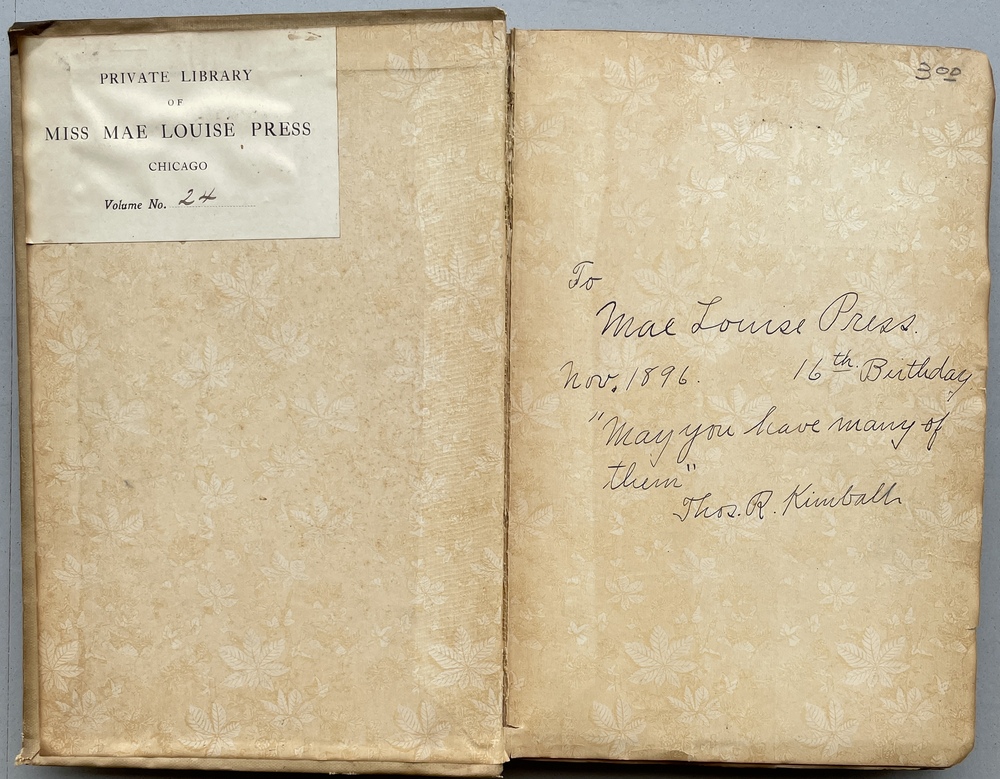 PRIVATE LIBRARY
OF
MISS MAE LOUISE PRESS
CHICAGO
Volume No. 24
3 00
To
Mae Louise Press.
Nov. 1896. 16th. Birthday
"May you have many of
them"
Thos. R. Kimball